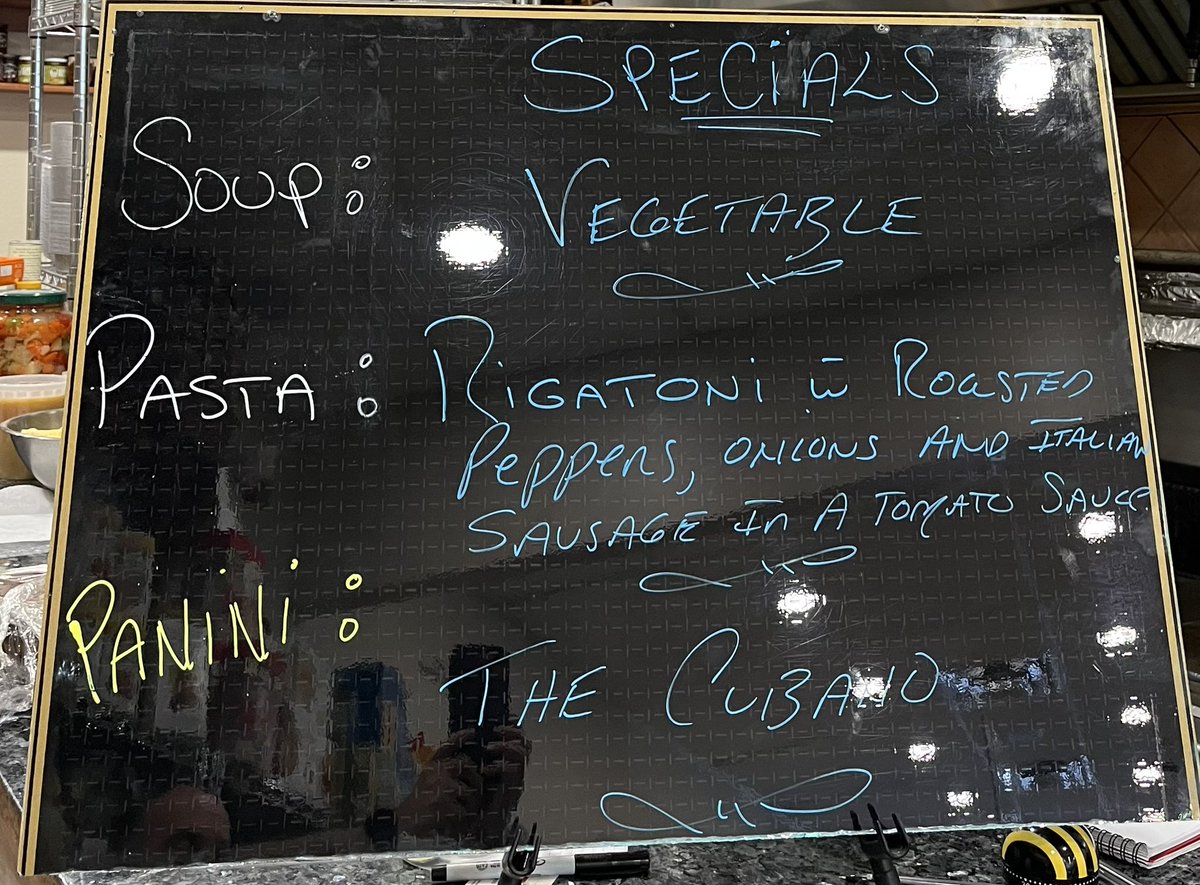 SPECiALS
Soup: VEGETABLE
PASTA: RIGATONi w̄ ROaSTED
PePPeRS, ONIONS AND ITALIAN
SAUSAGE In A TOMATO SAUCe
PANiNi:
THE CUBANO